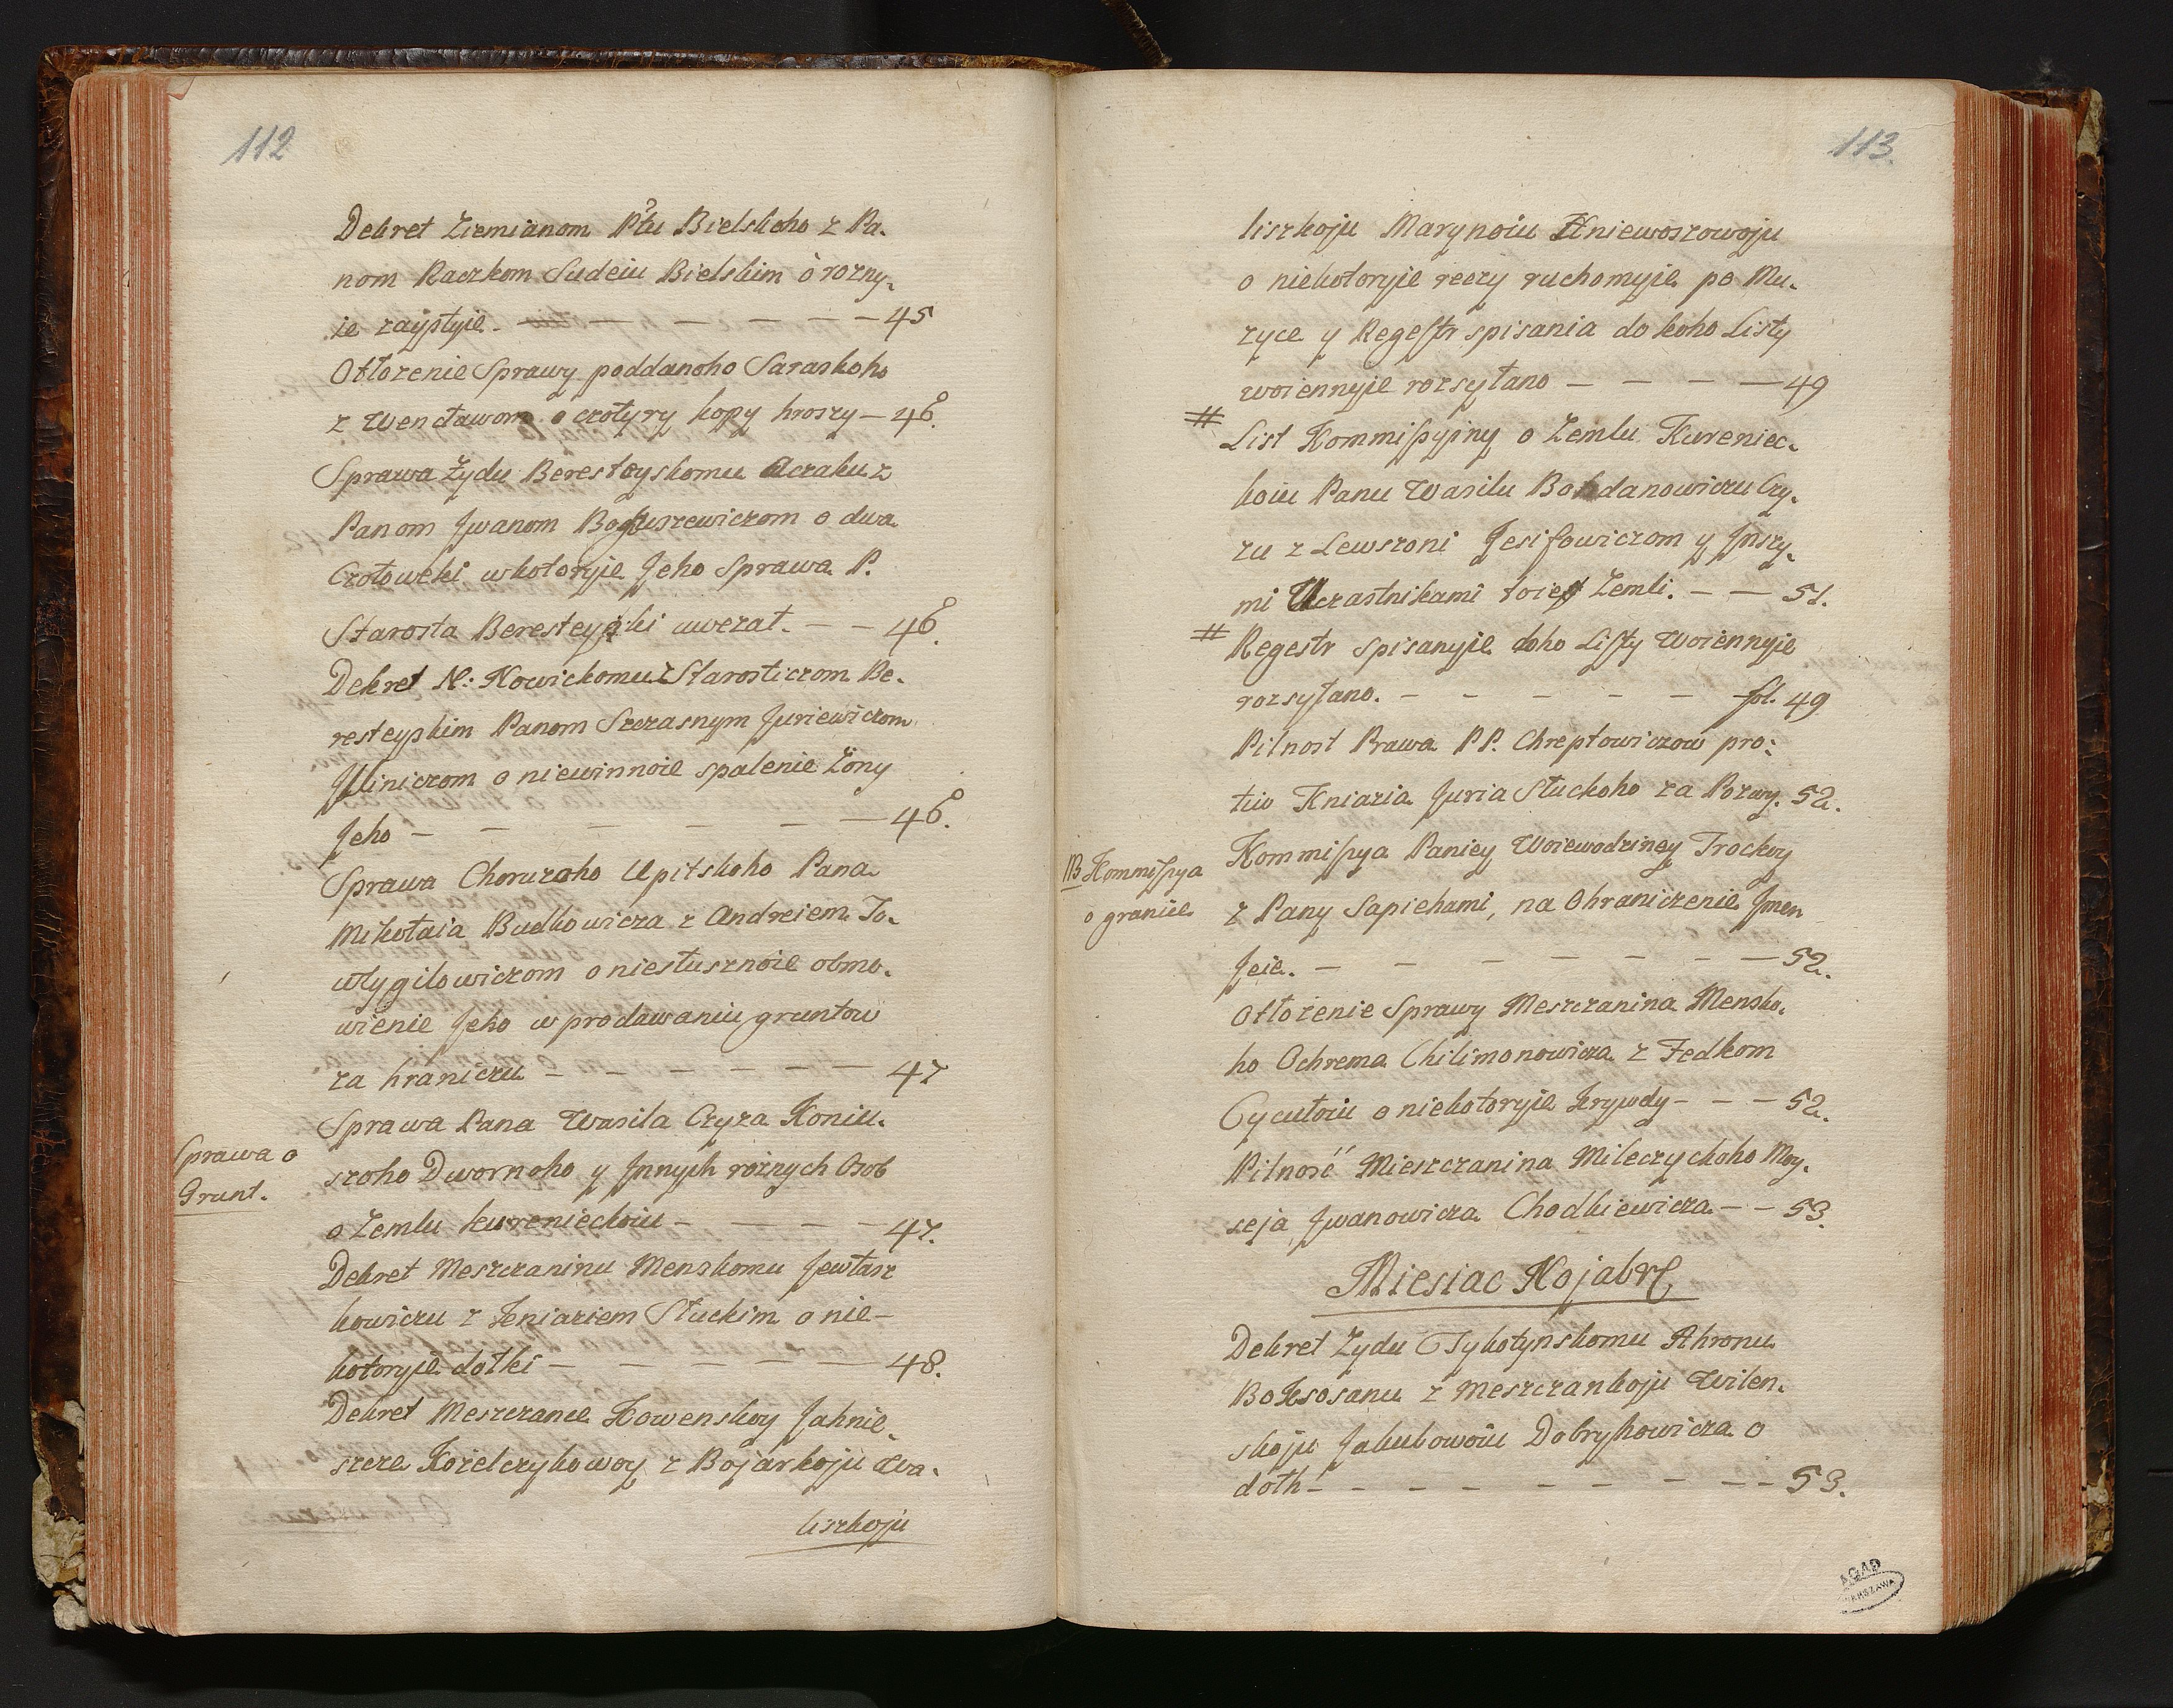 112
Dekret Ziemianom Ptu Bielskoho z Pa-
nom Raczkom Sudeiu Bielskim o rozny-
ie zaystyie. — — — — — 45
Otłozenie Sprawy poddanoho Saraskoho
z Wencławom o czotyry kopy hroszy — 46.
Sprawa Zydu Beresteyskomu Aczaku z
Panom Jwanom Bohuszewiczom o dwa
Czołoweki w kotoryie Jeho Sprawa P.
Starosta Beresteyski uwezał. — — 46.
Dekret N: Nowickomu z Starosticzom Be-
resteyskim Panom Szczasnym Juriewiczom
Jliniczom o niewinnoie spalenie Zony
Jeho — — — — — — 46.
Sprawa Choruzoho Upitskoho Pana
Mikołaia Budkowicza z Andreiem To-
wtygiłowiczom o niesłusznoie obmo-
wienie Jeho w prodawaniu gruntow
za hraniczu — — — — — — 47
Sprawa o
Grunt.
Sprawa Pana Wasila Czyza Koniu-
szoho Dwornoho y Jnnych roznych Osob
o Zemlu kureneckoiu — — — — 47.
Dekret Meszczaninu Menskomu Jewłasz
kowiczu z Kniaziem Słuckim o nie-
kotoryie dołki — — — — — 48.
Dekret Meszczance Kowenskoy Jahnie-
szcze Kozelczykowoy z Bojarkoju Wa-
liszkoju
113.
liszkoju Marynoiu Kniewoszowoju
o niekotoryie reczy ruchomyie po Mu-
zyce y Regestr spisania do koho Listy
woiennyie rozsyłano — — — — 49
# List Kommissyjny o Zemlu Kureniec-
koiu Panu Wasilu Bohdanowiczu Czy-
zu z Lewszoni Jesifowiczom y Jnszy-
mi Uczastnikami toiey Zemli. — — 51.
# Regestr spisanyie koho Listy Woiennyie
rozsyłano. — — — — — fol. 49
Pilnost Prawa PP. Chreptowiczow pro-
tiw Kniazia Juria Słuckoho za Pozwy. 52.
NB Kommissya
o granice
Kommissya Paniey Woiewodziney Trockoy
z Pany Sapiehami, na Ohraniczenie Jmen
Jeie. — — — — — — — 52.
Otłozenie Sprawy Meszczanina Mensko-
ho Ochrema Chilimonowicza z Fedkom
Cycutoiu o niekotoryie krywdy — — — 52.
Pilność Mieszczanina Mileczyckoho Moy-
seja Jwanowicza Chodkiewicza — — 53.
Miesiac Nojabre
Dekret Zydu Tykotynskomu Ahronu
z Meszczankoju Wilen-
skoju Jakubowoiu Dobryhowicza o
dołh — — — — — — — 53.
AGAD
WARSZAWA